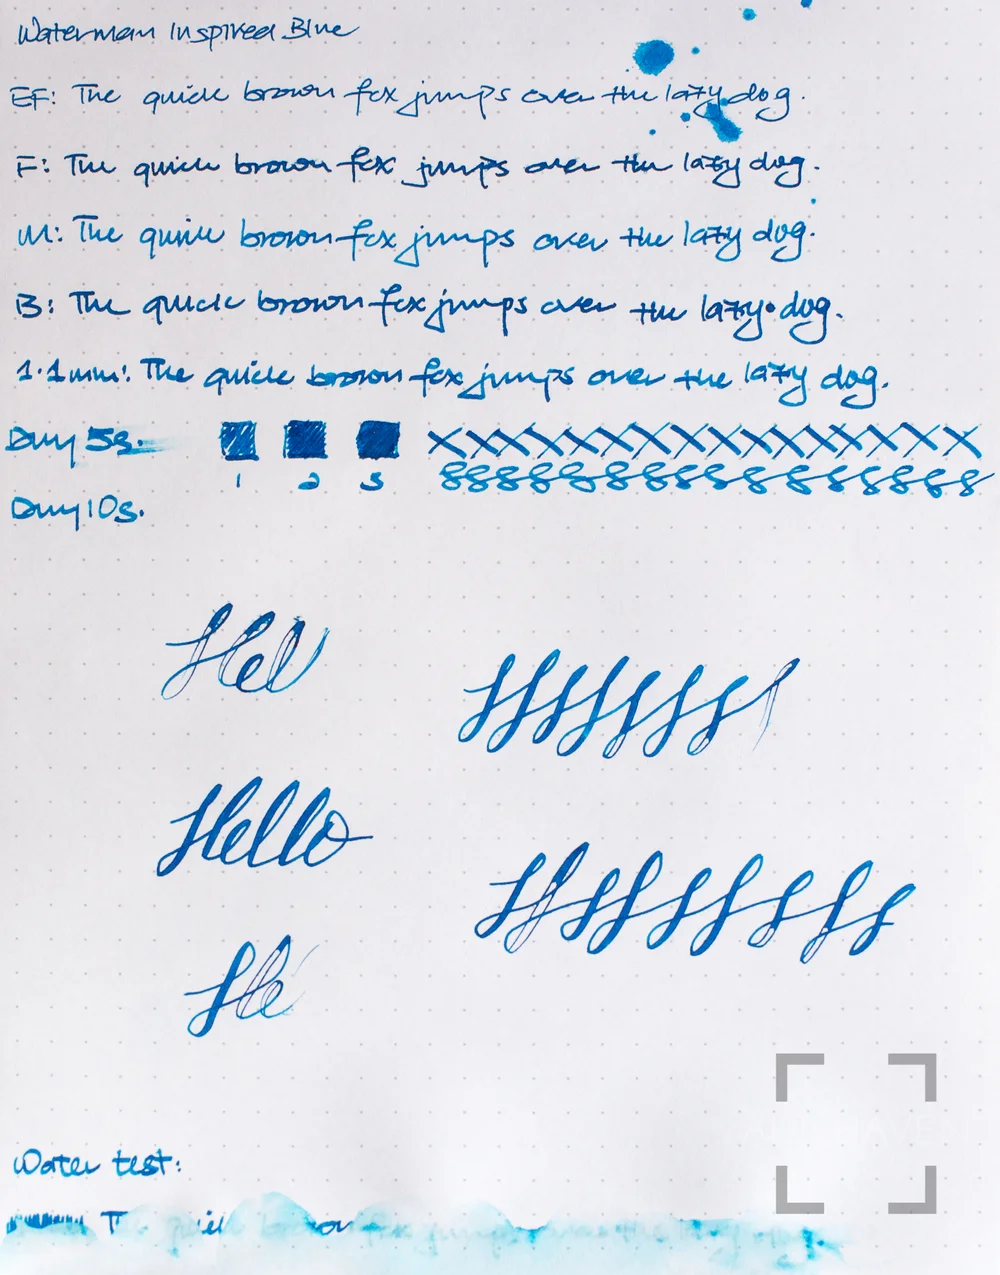 Waterman Inspired Blue
EF: The quick brown fox jumps over the lazy dog.
F: The quick brown fox jumps over the lazy dog.
M: The quick brown fox jumps over the lazy dog.
B: The quick brown fox jumps over the lazy dog.
1.1mm: The quick brown fox jumps over the lazy dog.
Dry 5s. XXXXXXXXXXXXXXXXX
1 2 3 888888888888888888
Dry 10s.
Hel
Hello
He
Water test:
T qui brown fox jumps over the lazy dog.